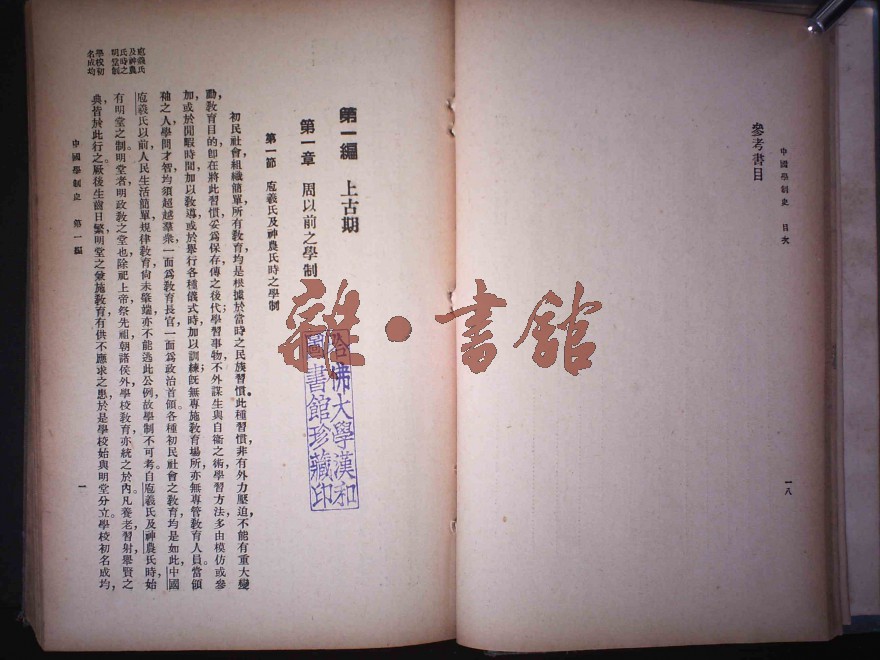 中國學制史　目次
參考書目
一八
第一編　上古期
第一章　周以前之學制
第一節　庖羲氏及神農氏時之學制
初民社會組織簡單，所有教育均是根據於當時之民族習慣。此種習慣，非有外力壓迫，不能有重大變
動，教育目的，卽在將此習慣妥爲保存，傳之後代；學習事物，不外謀生與自衞之術，學習方法，多由模仿或參
加，或於閒暇時間，加以敎導，或於舉行各種儀式時，加以訓練；旣無專施敎育場所，亦無專管敎育人員。當領
袖之人，學問才智，均須超越羣衆，一面爲敎育長官，一面爲政治首領。各種初民社會之敎育，均是如此，中國
庖羲氏以前，人民生活簡單，規律敎育，尙未肇端，亦不能逃此公例，故學制不可考。自庖羲氏及神農氏時，始
有明堂之制。明堂者，明政敎之堂也，除祀上帝，祭先祖，朝諸侯外，學校敎育，亦統之於內，凡養老，習射，舉賢之
典，皆於此行之。厥後生齒日繁，明堂之兼施敎育，有供不應求之患，於是學校始與明堂分立。學校初名成均，
庖羲氏
及神農
氏時之
明堂制
學校初
名成均
中國學制史　第一編
一
雜·書館
哈佛大學漢和
圖書館珍藏印